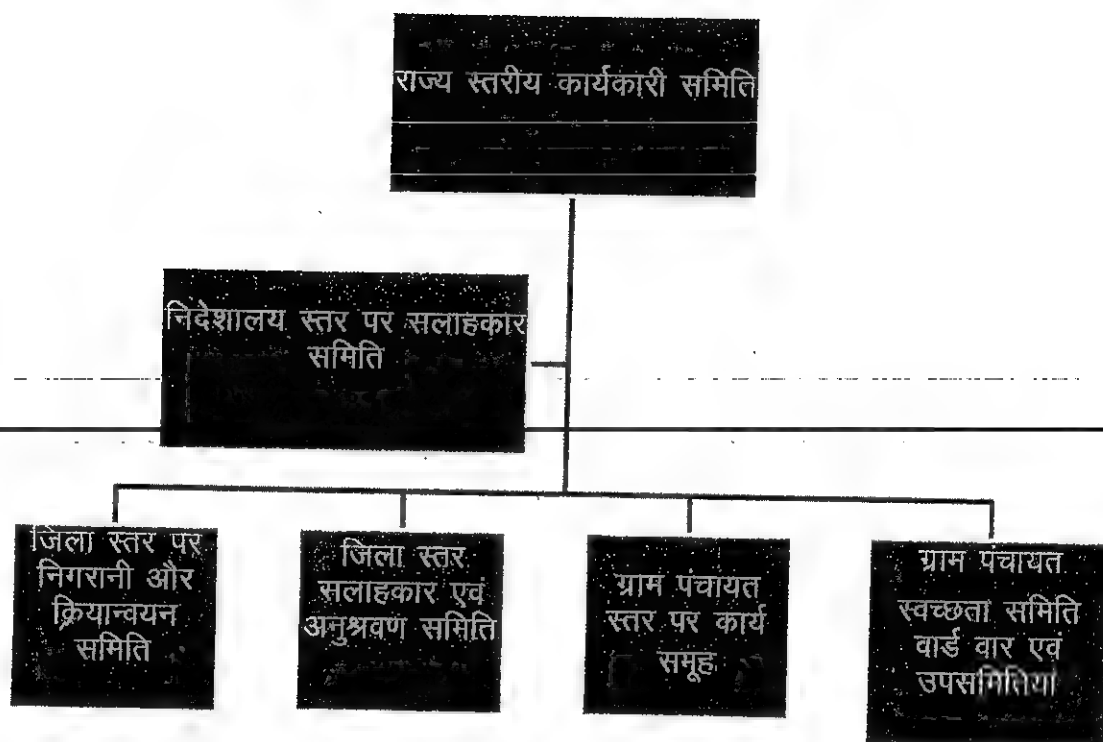 राज्य स्तरीय कार्यकारी समिति
निदेशालय स्तर पर सलाहकार
समिति
जिला स्तर पर
निगरानी और
क्रियान्वयन
समिति
जिला स्तर
सलाहकार एवं
अनुश्रवण समिति
ग्राम पंचायत
स्तर पर कार्य
समूह
ग्राम पंचायत
स्वच्छता समिति
वार्ड वार एवं
उपसमितियां